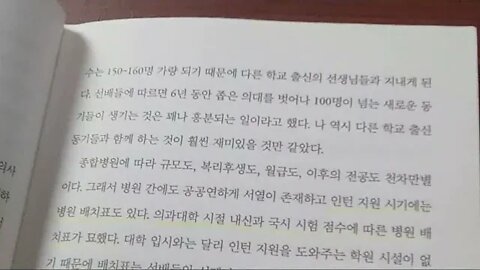 수는 150-160명 가량 되기 때문에 다른 학교 출신의 선생님들과 지내게 된
다. 선배들에 따르면 6년 동안 좁은 의대를 벗어나 100명이 넘는 새로운 동
기들이 생기는 것은 꽤나 흥분되는 일이라고 했다. 나 역시 다른 학교 출신
동기들과 함께 하는 것이 훨씬 재미있을 것만 같았다.
종합병원에 따라 규모도, 복리후생도, 월급도, 이후의 전공도 천차만별
이다. 그래서 병원 간에도 공공연하게 서열이 존재하고 인턴 지원 시기에는
병원 배치표도 있다. 의과대학 시절 내신과 국시 시험 점수에 따른 병원 배
치표가 묘했다. 대학 입시와는 달리 인턴 지원을 도와주는 학원 시설이 없
기 때문에 배치표는 선배들이